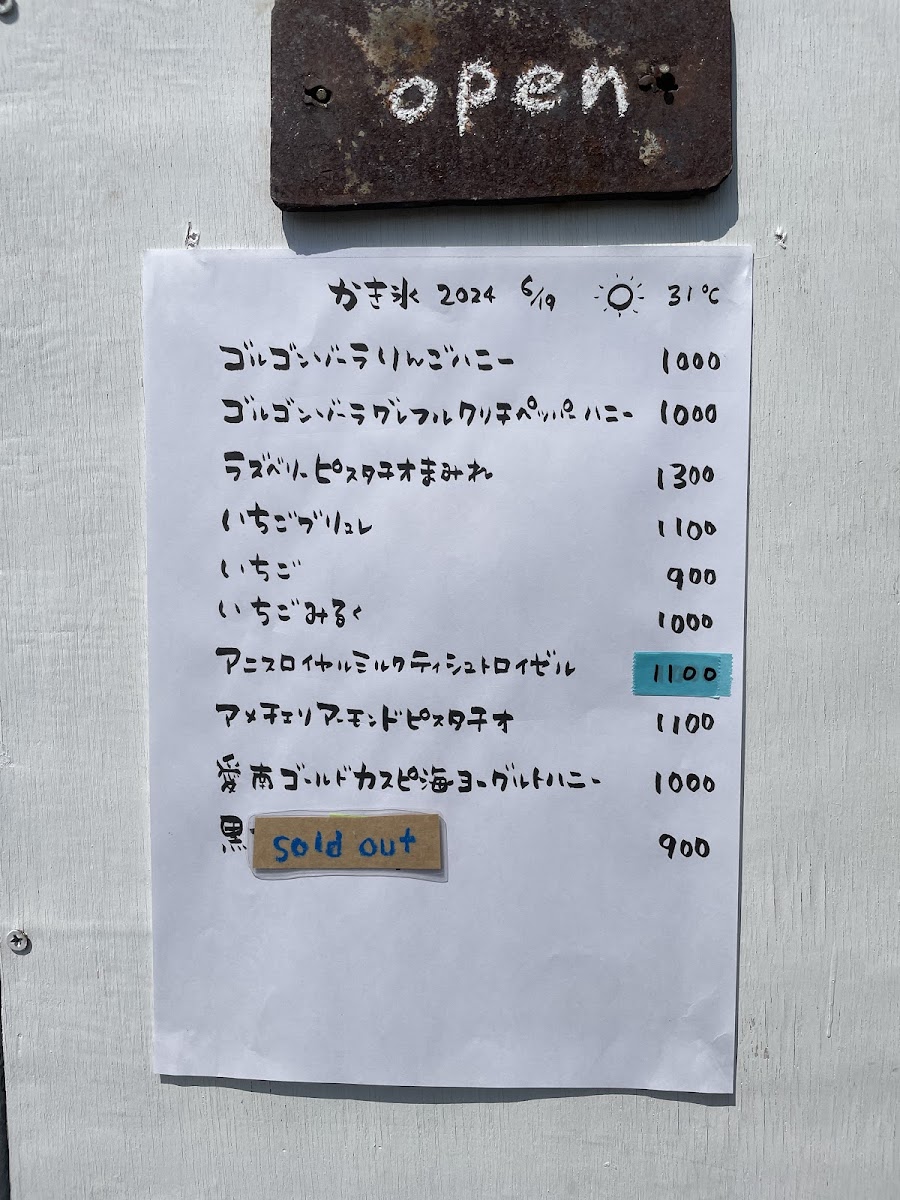 open
かき氷 2024 6/19 31℃
ゴルゴンゾーラりんごハニー 1000
ゴルゴンゾーラグレフルクリチペッパーハニー 1000
ラズベリーピスタチオまみれ 1300
いちごブリュレ 1100
いちご 900
いちごみるく 1000
アニスロイヤルミルクティシュトロイゼル 1100
アメチェリアーモンドピスタチオ 1100
愛南ゴールドカスピ海ヨーグルトハニー 1000
黒 sold out 900